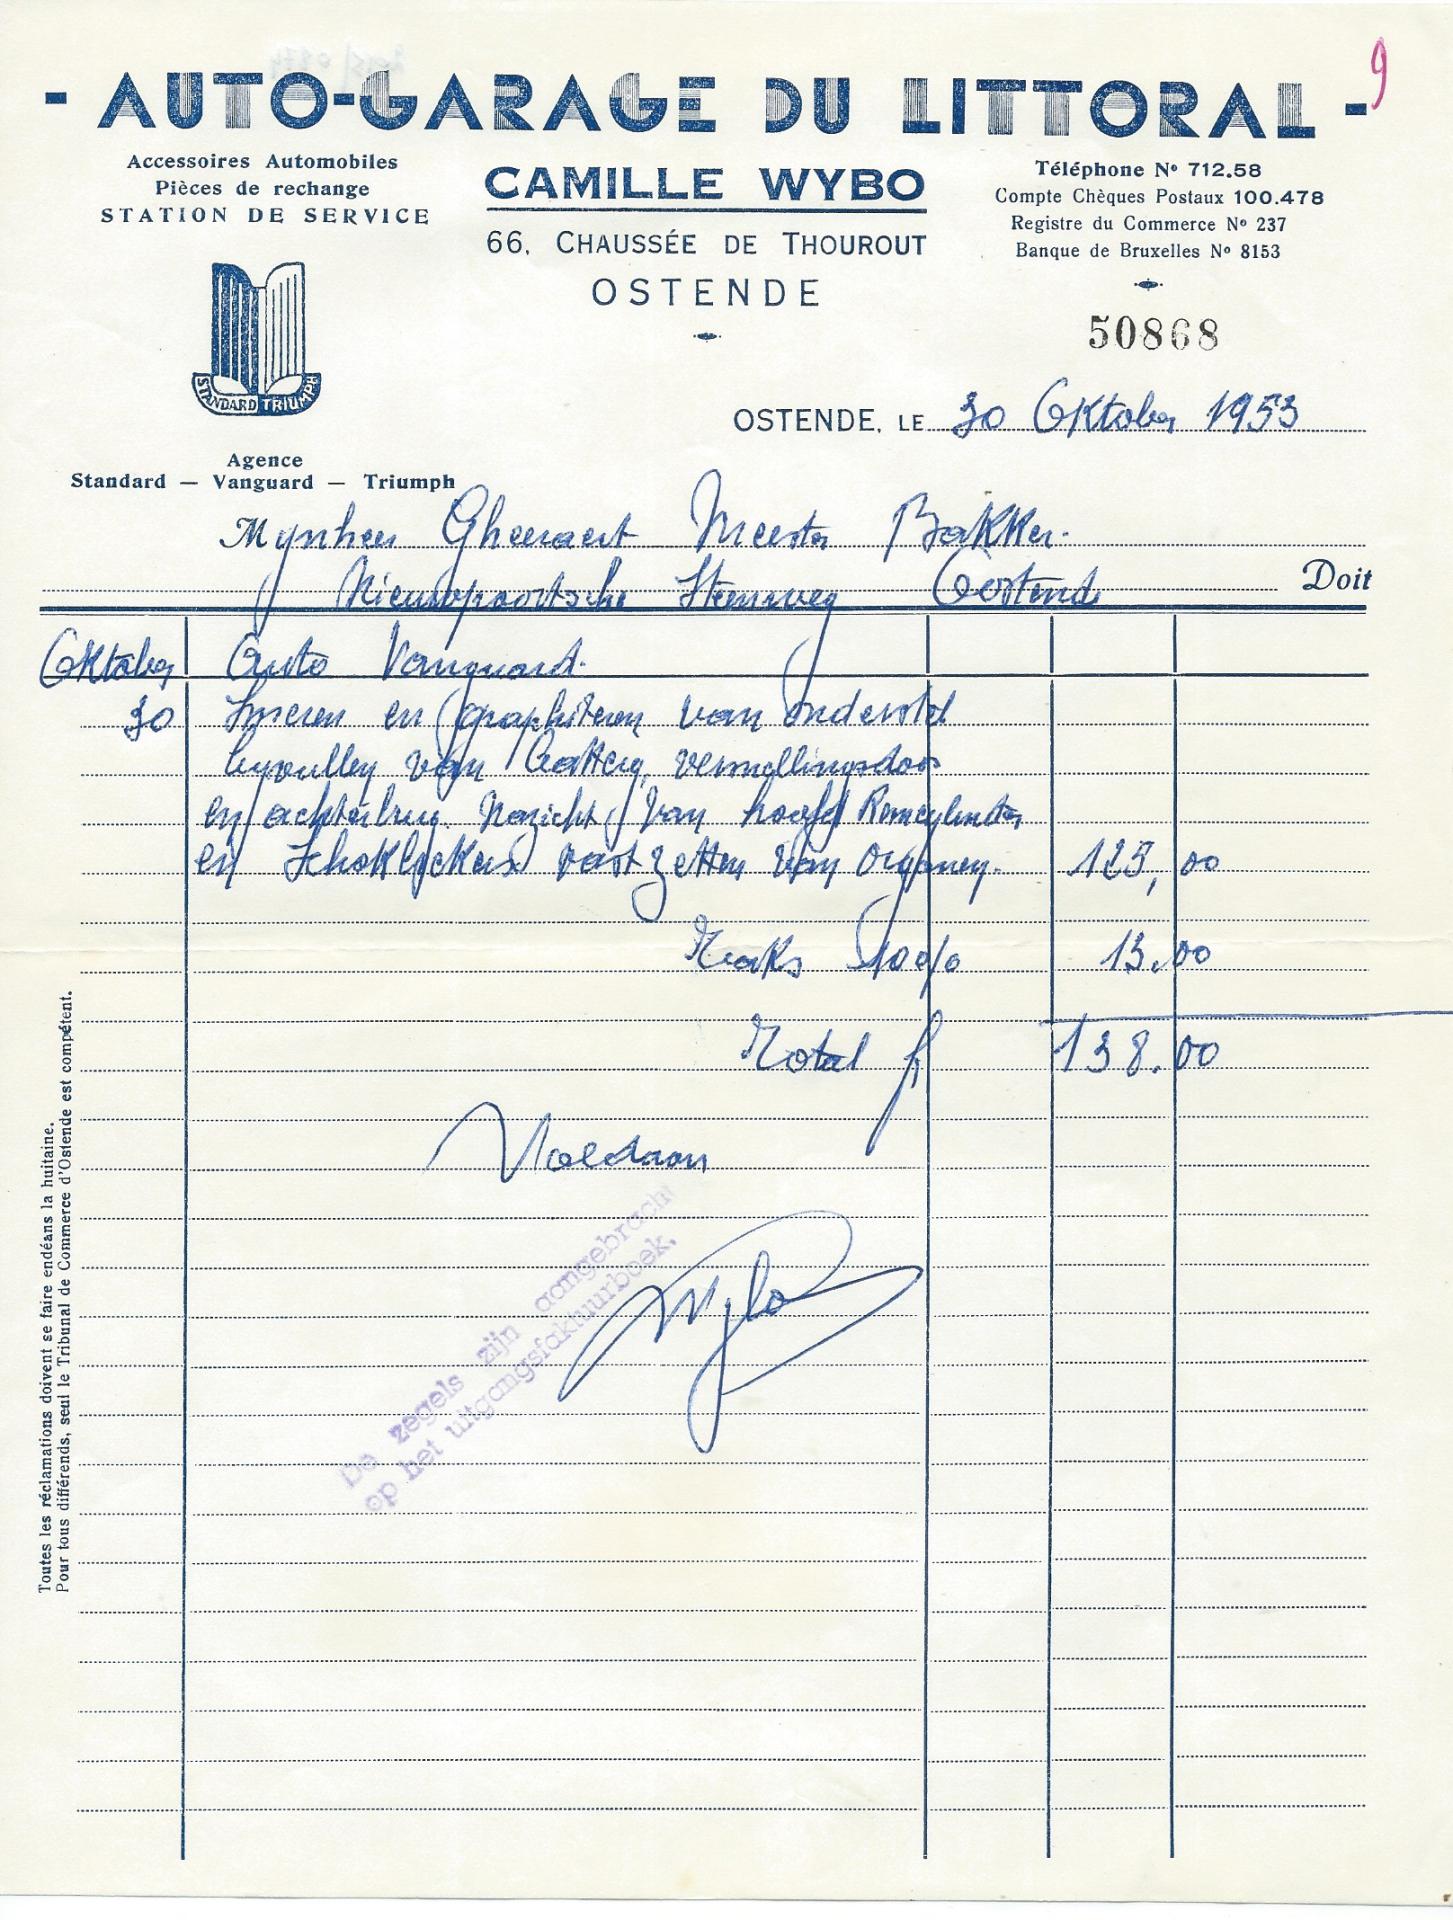 9
- AUTO-GARAGE DU LITTORAL -
Accessoires Automobiles
Pièces de rechange
STATION DE SERVICE
CAMILLE WYBO
66, CHAUSSÉE DE THOUROUT
OSTENDE
Téléphone Nº 712.58
Compte Chèques Postaux 100.478
Registre du Commerce Nº 237
Banque de Bruxelles Nº 8153
50868
STANDARD TRIUMPH
OSTENDE, LE 30 Oktober 1953
Agence
Standard — Vanguard — Triumph
Mynheer Gheeraert Meester Bakker.
Nieuwpoortsche Steenweg Oostende Doit
Oktober Auto Vanguard.
30 Smeren en graphiteren van onderstel
byvullen van Battery, versnellingsdoos
en achterbrug. Nazicht van hoofd Remcylinder
en Schokbrekers vastzetten van Organen. 125,00
Taks 10% 13.00
Total fr 138.00
Voldaan
Wybo
De zegels zijn aangebracht
op het uitgangsfaktuurboek.
Toutes les réclamations doivent se faire endéans la huitaine.
Pour tous différends, seul le Tribunal de Commerce d'Ostende est compétent.